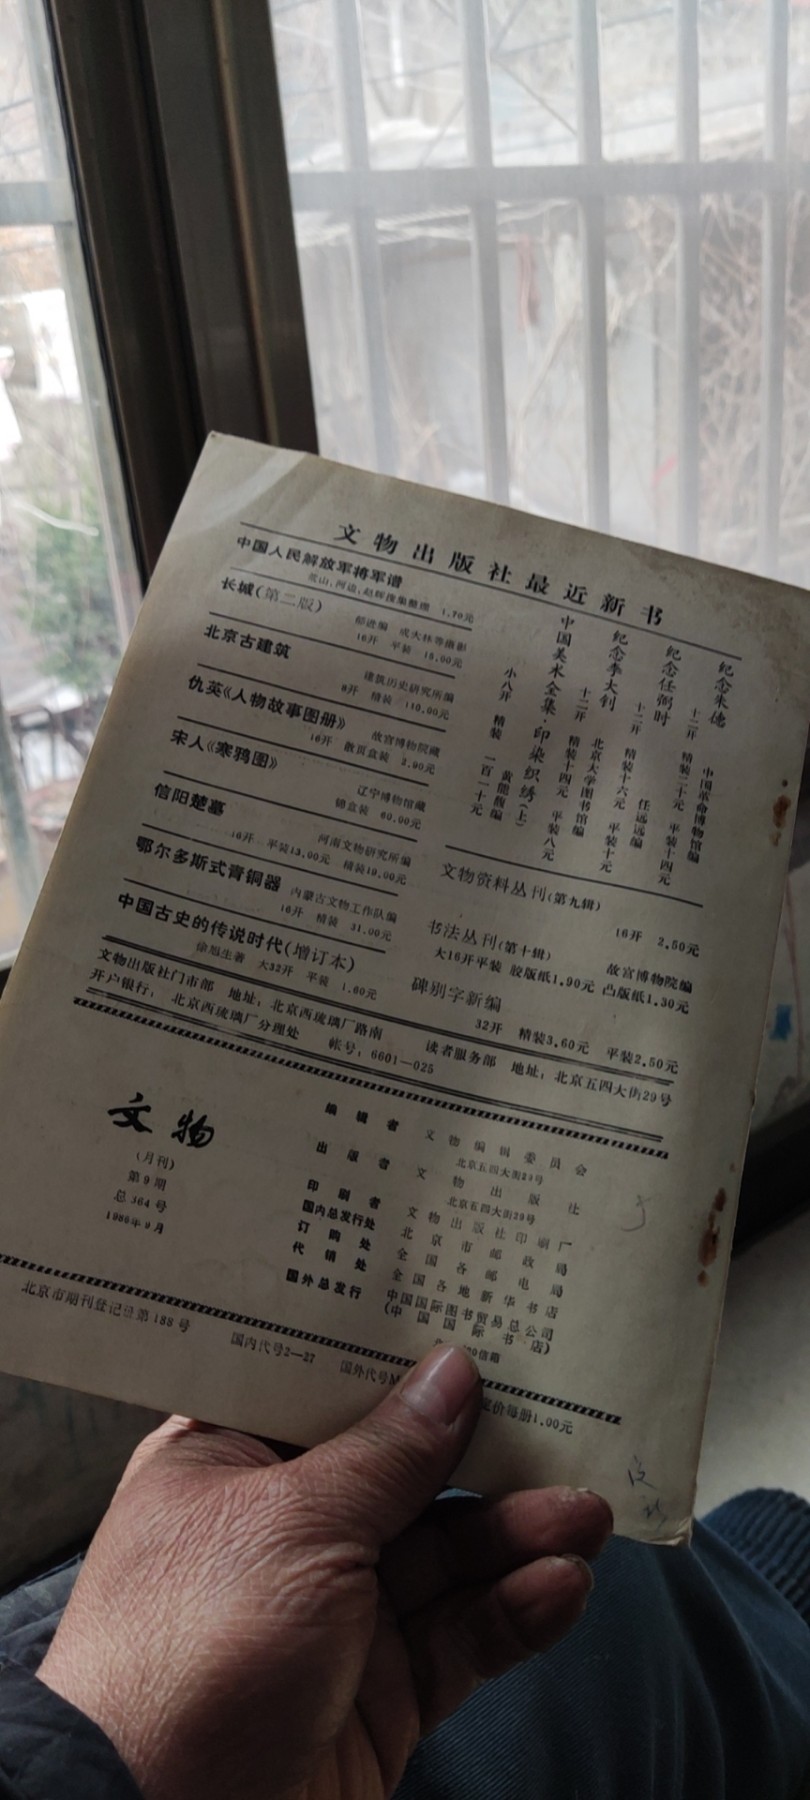 文物出版社最近新书
中国人民解放军将军谱
1.70元
长城(第二版)
郁进编 成大林等摄影
16开 平装 18.00元
北京古建筑
建筑历史研究所编
8开 精装 110.00元
仇英《人物故事图册》
故宫博物院藏
16开 散页盒装 2.90元
宋人《寒鸦图》
辽宁博物馆藏
锦盒装 60.00元
信阳楚墓
河南文物研究所编
16开 平装13.00元 精装19.00元
鄂尔多斯式青铜器
内蒙古文物工作队编
16开 精装 31.00元
中国古史的传说时代(增订本)
徐旭生著 大32开 平装 1.60元
纪念朱德
中国革命博物馆编
十二开 精装二十元 平装十四元
纪念任弼时
任远远编
十二开 精装十六元 平装十元
纪念李大钊
北京大学图书馆编
十二开 精装十四元 平装八元
中国美术全集·印染织绣(上)
黄能馥编
小八开 精装 一百一十元
文物资料丛刊(第九辑)
16开 2.50元
书法丛刊(第十辑)
故宫博物院编
大16开平装 胶版纸1.90元 凸版纸1.30元
碑别字新编
32开 精装3.60元 平装2.50元
文物出版社门市部 地址:北京西琉璃厂路南
读者服务部 地址:北京五四大街29号
开户银行: 北京西琉璃厂分理处 帐号:6601—025
文物
(月刊)
第9期
总364号
1986年9月
编辑者 文物编辑委员会
北京五四大街29号
出版者 文物出版社
北京五四大街29号
印刷者 文物出版社印刷厂
国内总发行处 北京市邮政局
订购处 全国各邮电局
代销处 全国各地新华书店
国外总发行 中国国际图书贸易总公司
(中国国际书店)
信箱
北京市期刊登记证第188号 国内代号2—27 国外代号M 定价每册1.00元